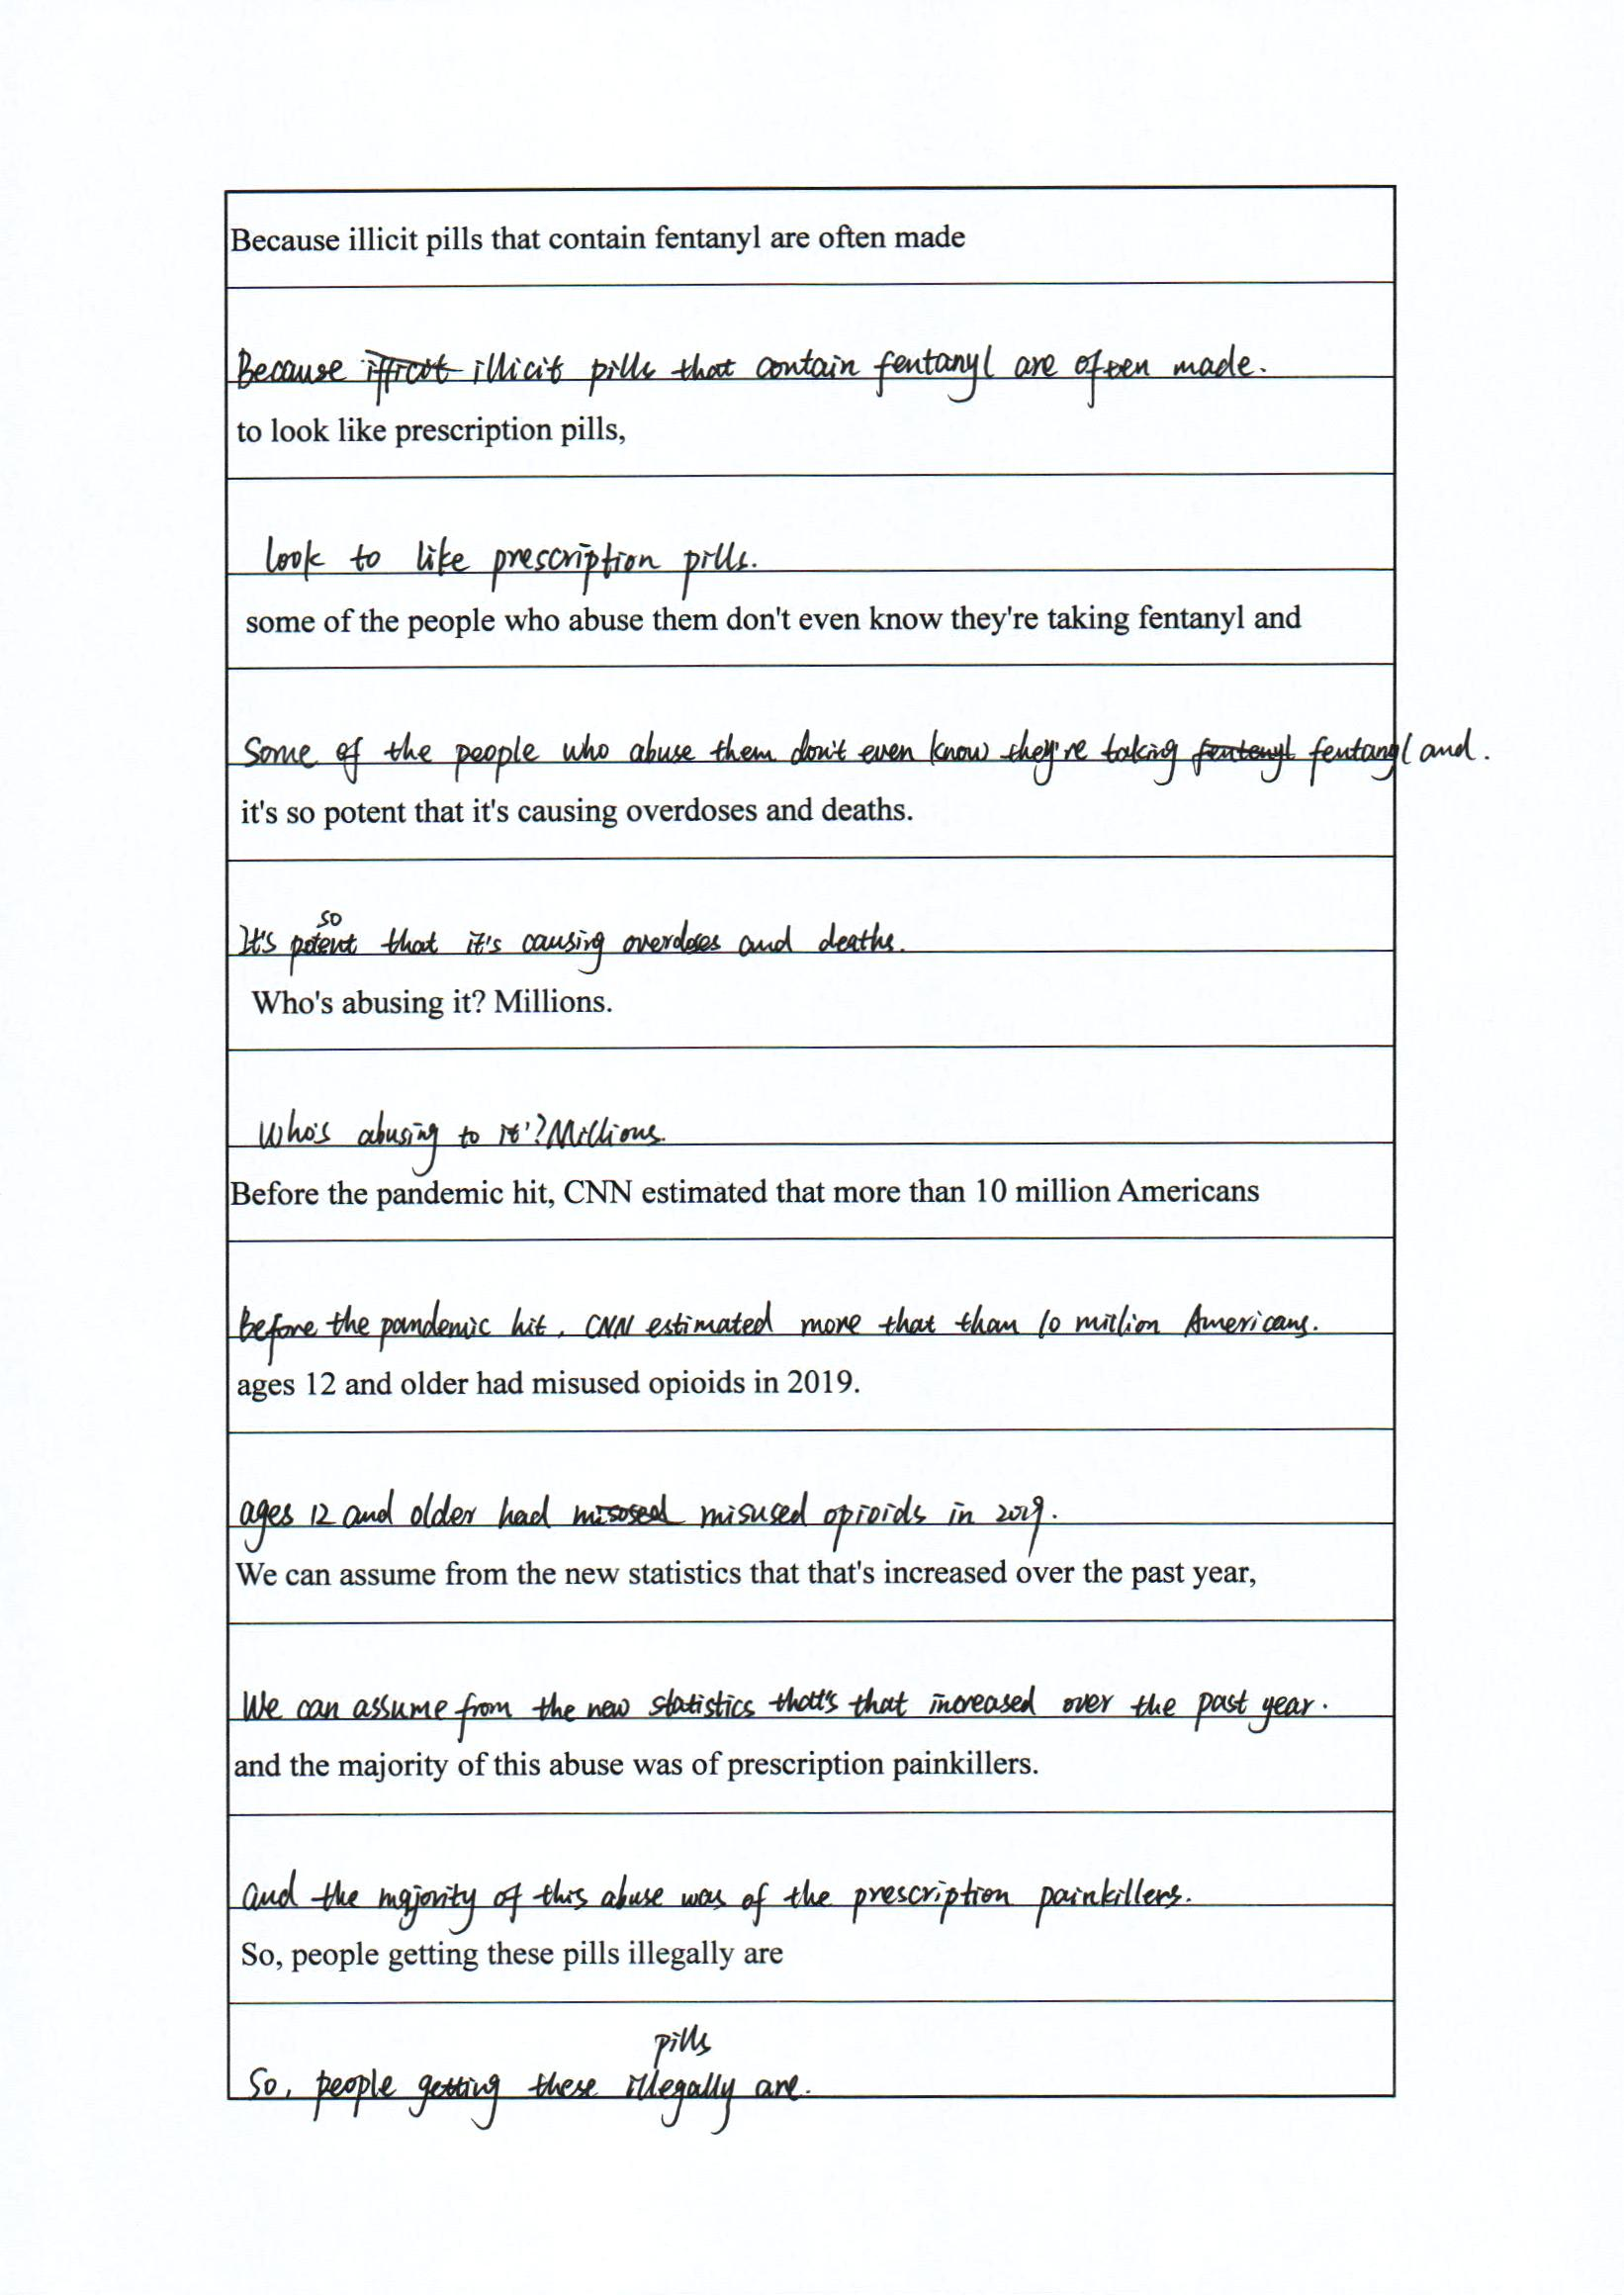 Because illicit pills that contain fentanyl are often made
Because illicit pills that contain fentanyl are often made.
to look like prescription pills,
look to like prescription pills.
some of the people who abuse them don't even know they're taking fentanyl and
Some of the people who abuse them don't even know they're taking fentenyl fentangl and.
it's so potent that it's causing overdoses and deaths.
It's so potent that it's causing overdoses and deaths.
Who's abusing it? Millions.
Who's abusing to it'? Millions.
Before the pandemic hit, CNN estimated that more than 10 million Americans
Before the pandemic hit, CNN estimated more that than 10 million Americans.
ages 12 and older had misused opioids in 2019.
ages 12 and older had misosed misused opioids in 2019.
We can assume from the new statistics that that's increased over the past year,
We can assume from the new statistics that's that increased over the past year.
and the majority of this abuse was of prescription painkillers.
and the majority of this abuse was of the prescription painkillers.
So, people getting these pills illegally are
So, people getting these pills illegally are.